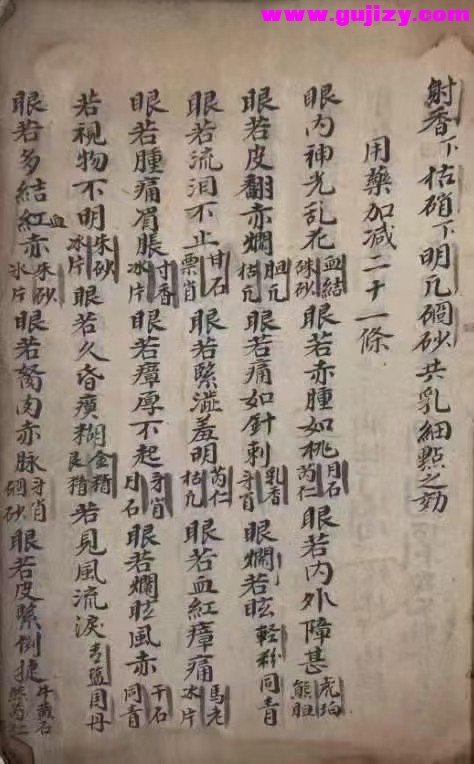 www.gujizy.com
射香下枯硝下明元硼砂共乳細點之効
用藥加減二十一條
眼内神光乱花血結硃砂眼若赤腫如桃月石芮仁眼若内外障甚虎珀熊胆
眼若皮翻赤爛胆元枯元眼若痛如針刺乳香牙肖眼爛若眩輕粉同青
眼若流泪不止甘石票肖眼若緊澁羞明芮仁枯元眼若血紅瘴痛馬老冰片
眼若腫痛眉脹寸香冰片眼若瘴厚不起牙肖月石眼若爛眩風赤干石同青
若視物不明朱砂冰片眼若久昏癀糊金精艮精若見風流淚青盐周丹
眼若多結紅赤血朱砂冰片眼若胬肉赤脉牙肖硼砂眼若皮緊倒捷芮仁